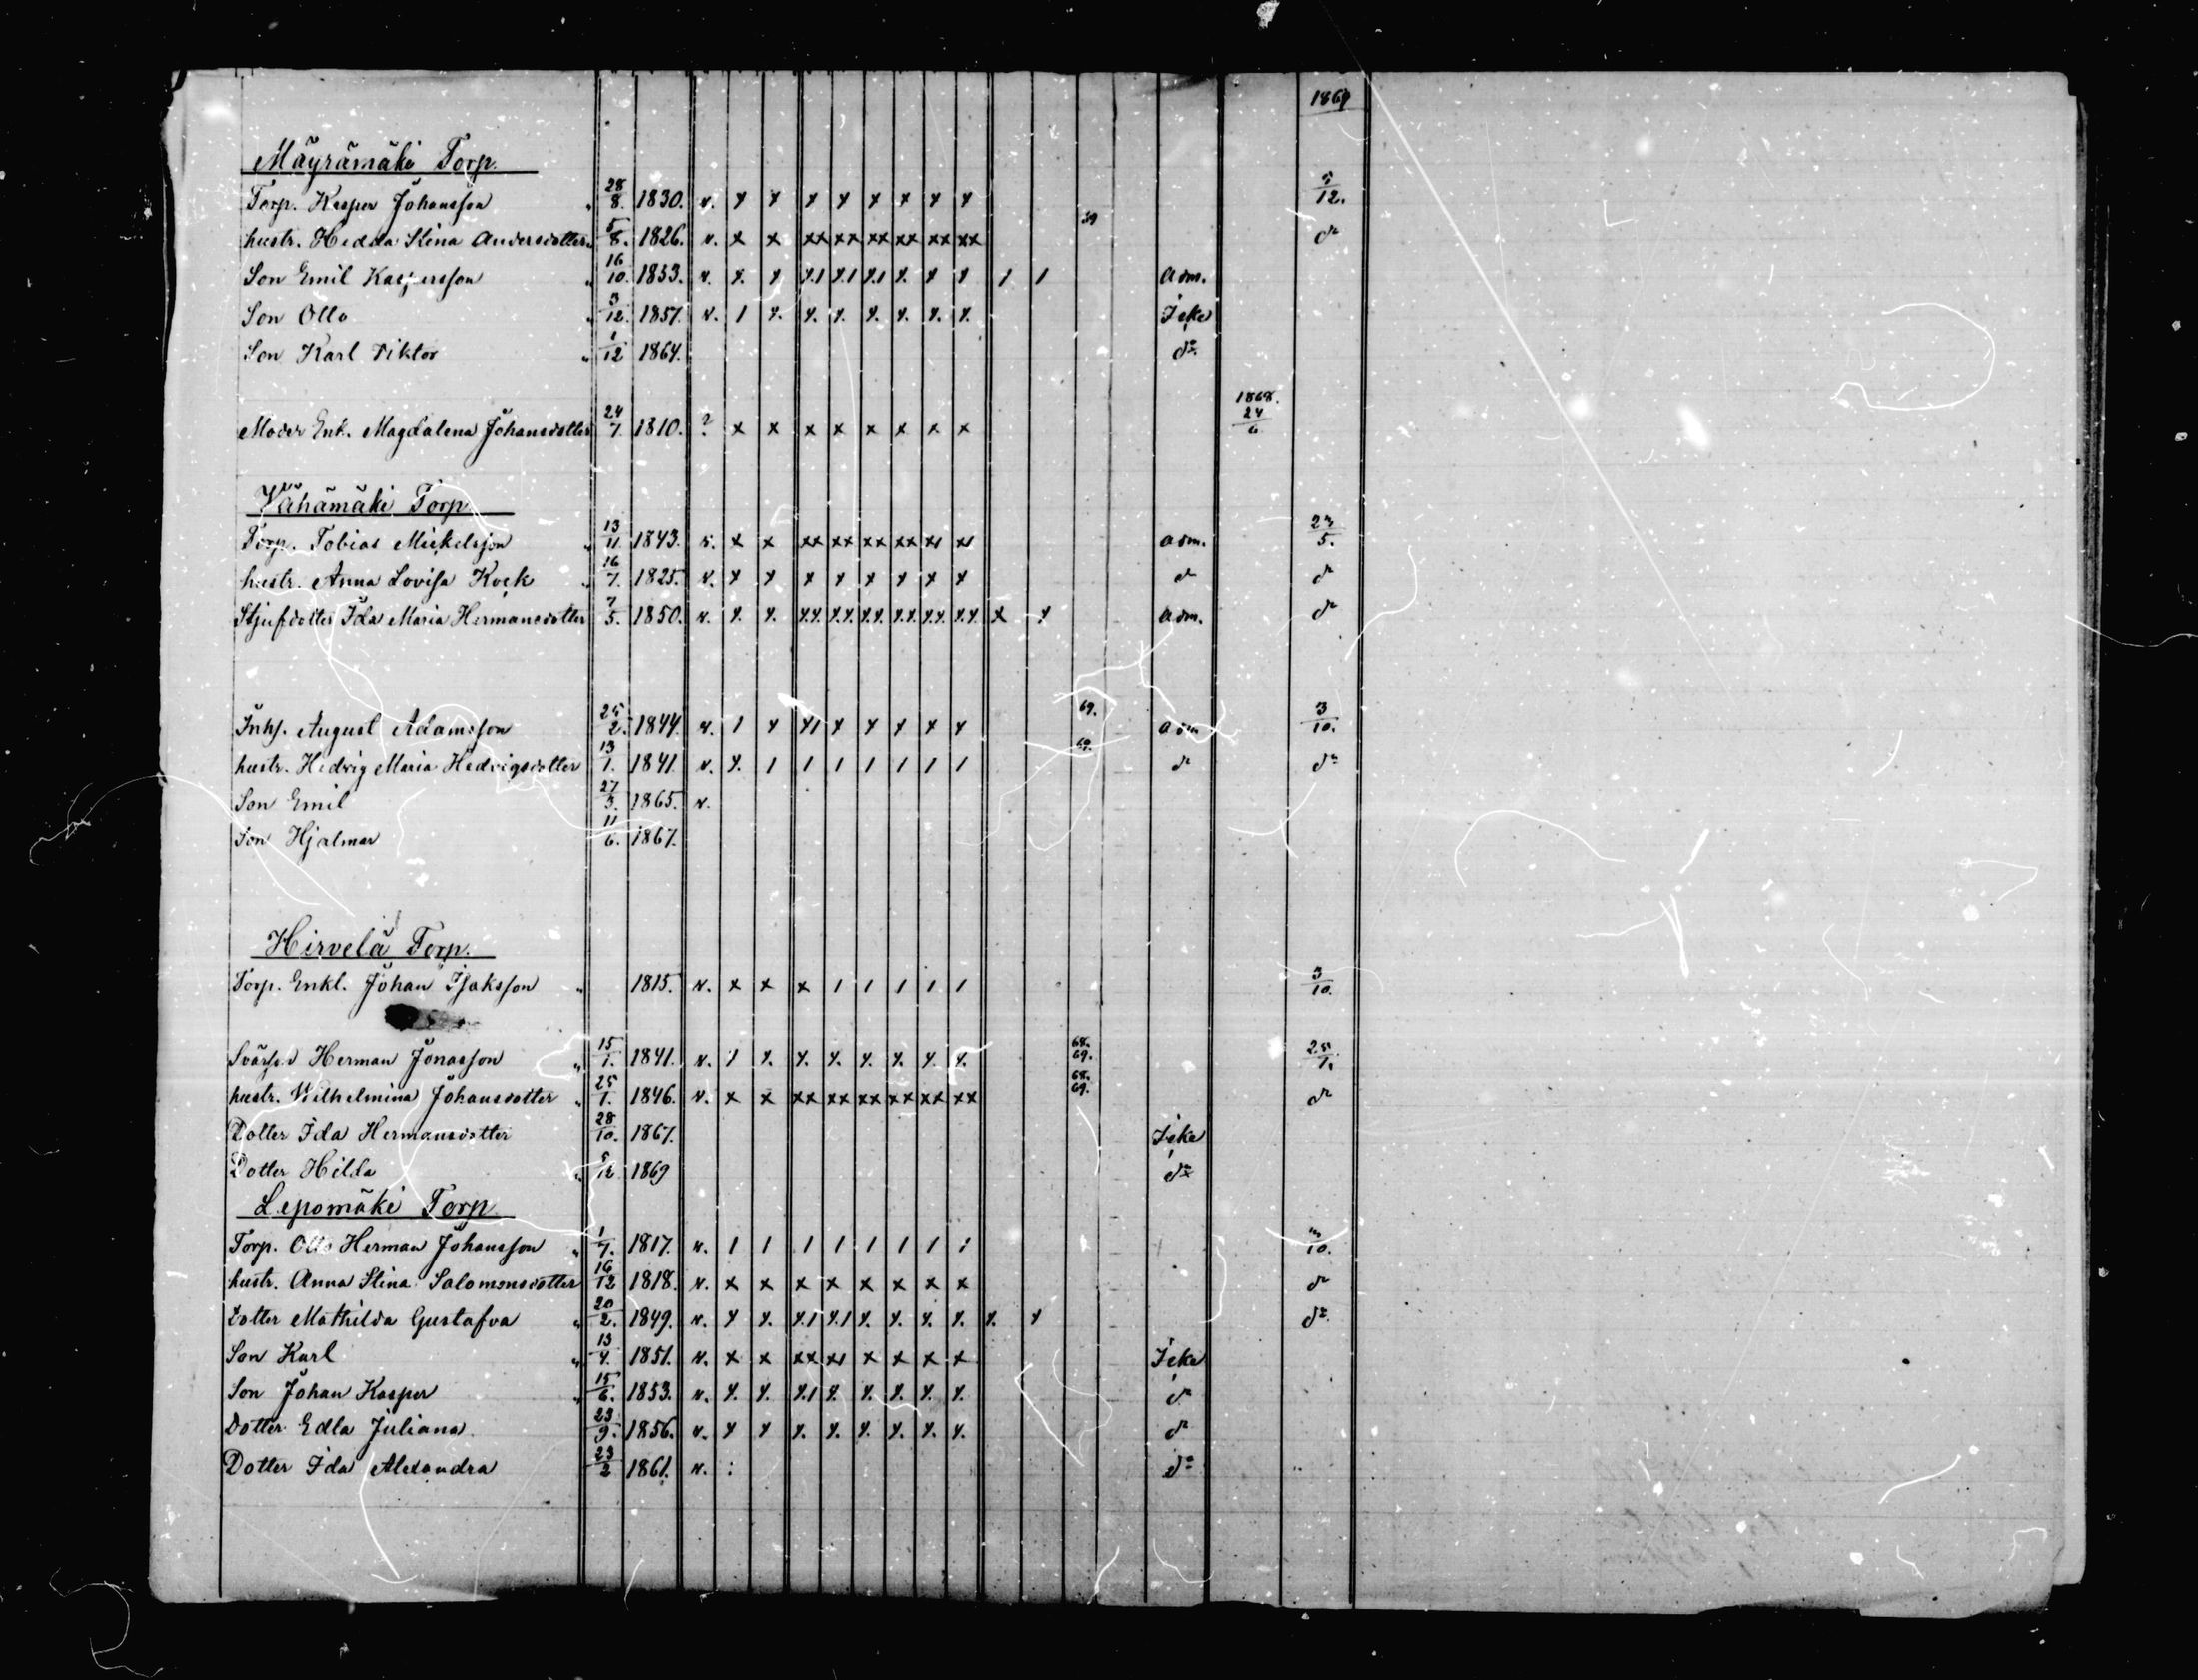 1869
Mäyrämäki Torp.
Torp. Kasper Johansson " 28/8. 1830. v. x x x x x x x x 5/12.
hustr. Hedda Stina Andersdotter " 5/8. 1826. v. x x xx xx xx xx xx xx do
Son Emil Kaspersson " 16/10. 1853. v. x. x x1 x1 x1 x. x x 1 1 adm.
Son Otto " 3/12. 1857. v. 1 x. x. x. x. x. x. x. Icke
Son Karl Viktor " 1/12 1864. do
Moder Enk. Magdalena Johansdotter 24/7. 1810. ? x x x x x x x x 1868. 24/6
Vähämäki Torp
Torp. Tobias Mickelsson " 13/11. 1843. v. x x xx xx xx xx x1 x1 adm. 23/5.
hustr. Anna Lovisa Kock " 16/7. 1825. v. x x x x x x x x do do
Stjufdotter Ida Maria Hermansdotter 7/5. 1850. v. x. x. xx. xx. xx. xx. xx. xx. x x adm. do
Inhs. August Adamsson 25/2. 1844. v. 1 x x1 x x x x x 69. adm 3/10.
hustr. Hedvig Maria Hedvigsdotter 13/1. 1841. v. x. 1 1 1 1 1 1 1 69. do do
Son Emil 27/3. 1865. v.
Son Hjalmar 11/6. 1867.
Hirvelä Torp.
Torp. Enkl. Johan Isaksson " 1815. v. x x x 1 1 1 1 1 3/10.
Svärson Herman Jonasson " 15/1. 1841. v. 1 x. x. x. x. x. x. x. 68. 69. 25/7.
hustr. Wilhelmina Johansdotter " 25/1. 1846. v. x x xx xx xx xx xx xx 68. 69. do
Dotter Ida Hermansdotter 28/10. 1867. Icke
Dotter Hilda " 8/12 1869 do
Lepomäki Torp
Torp. Otto Herman Johansson " 1/7. 1817. v. 1 1 1 1 1 1 1 1 3/10.
hustr. Anna Stina Salomonsdotter 16/12 1818. v. x x x x x x x x do
Dotter Mathilda Gustafva " 20/2. 1849. v. x x. x1 x1 x. x. x. x. x. x do
Son Karl " 13/4. 1851. v. x x xx x1 x x x x Icke
Son Johan Kasper " 15/6. 1853. v. x. x. x1 x. x. x. x. x. do
Dotter Edla Juliana 23/9. 1856. v. x x x. x. x. x. x. x. do
Dotter Ida Alexandra 23/2 1861. v. : do